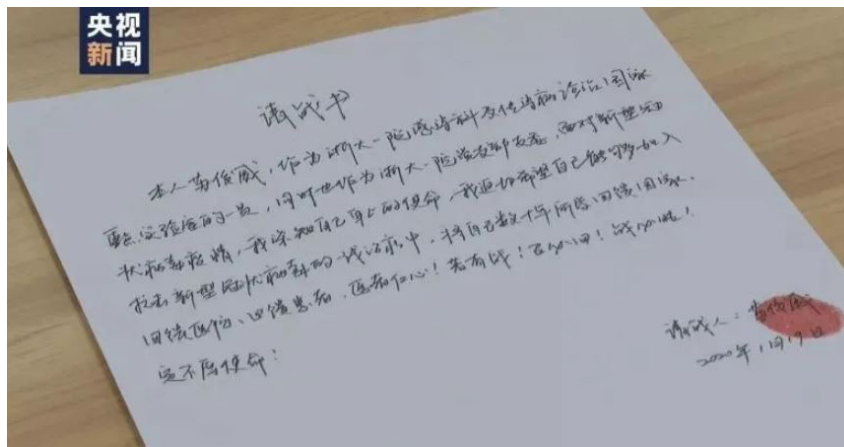 央视
新闻
请战书
本人黄俊威，作为浙大一院感染科及传染病诊治国家
重点实验室的一员，同时也作为浙大一院党支部支委，面对新型冠
状病毒疫情，我深知自己身上的使命，我迫切希望自己能够加入
抗击新型冠状病毒的战役中，将自己数十年所学回馈国家、
回馈医院、回馈患者，医者仁心！若有战！召必回！战必胜！
定不辱使命！
请战人：黄俊威
2020年1月19日